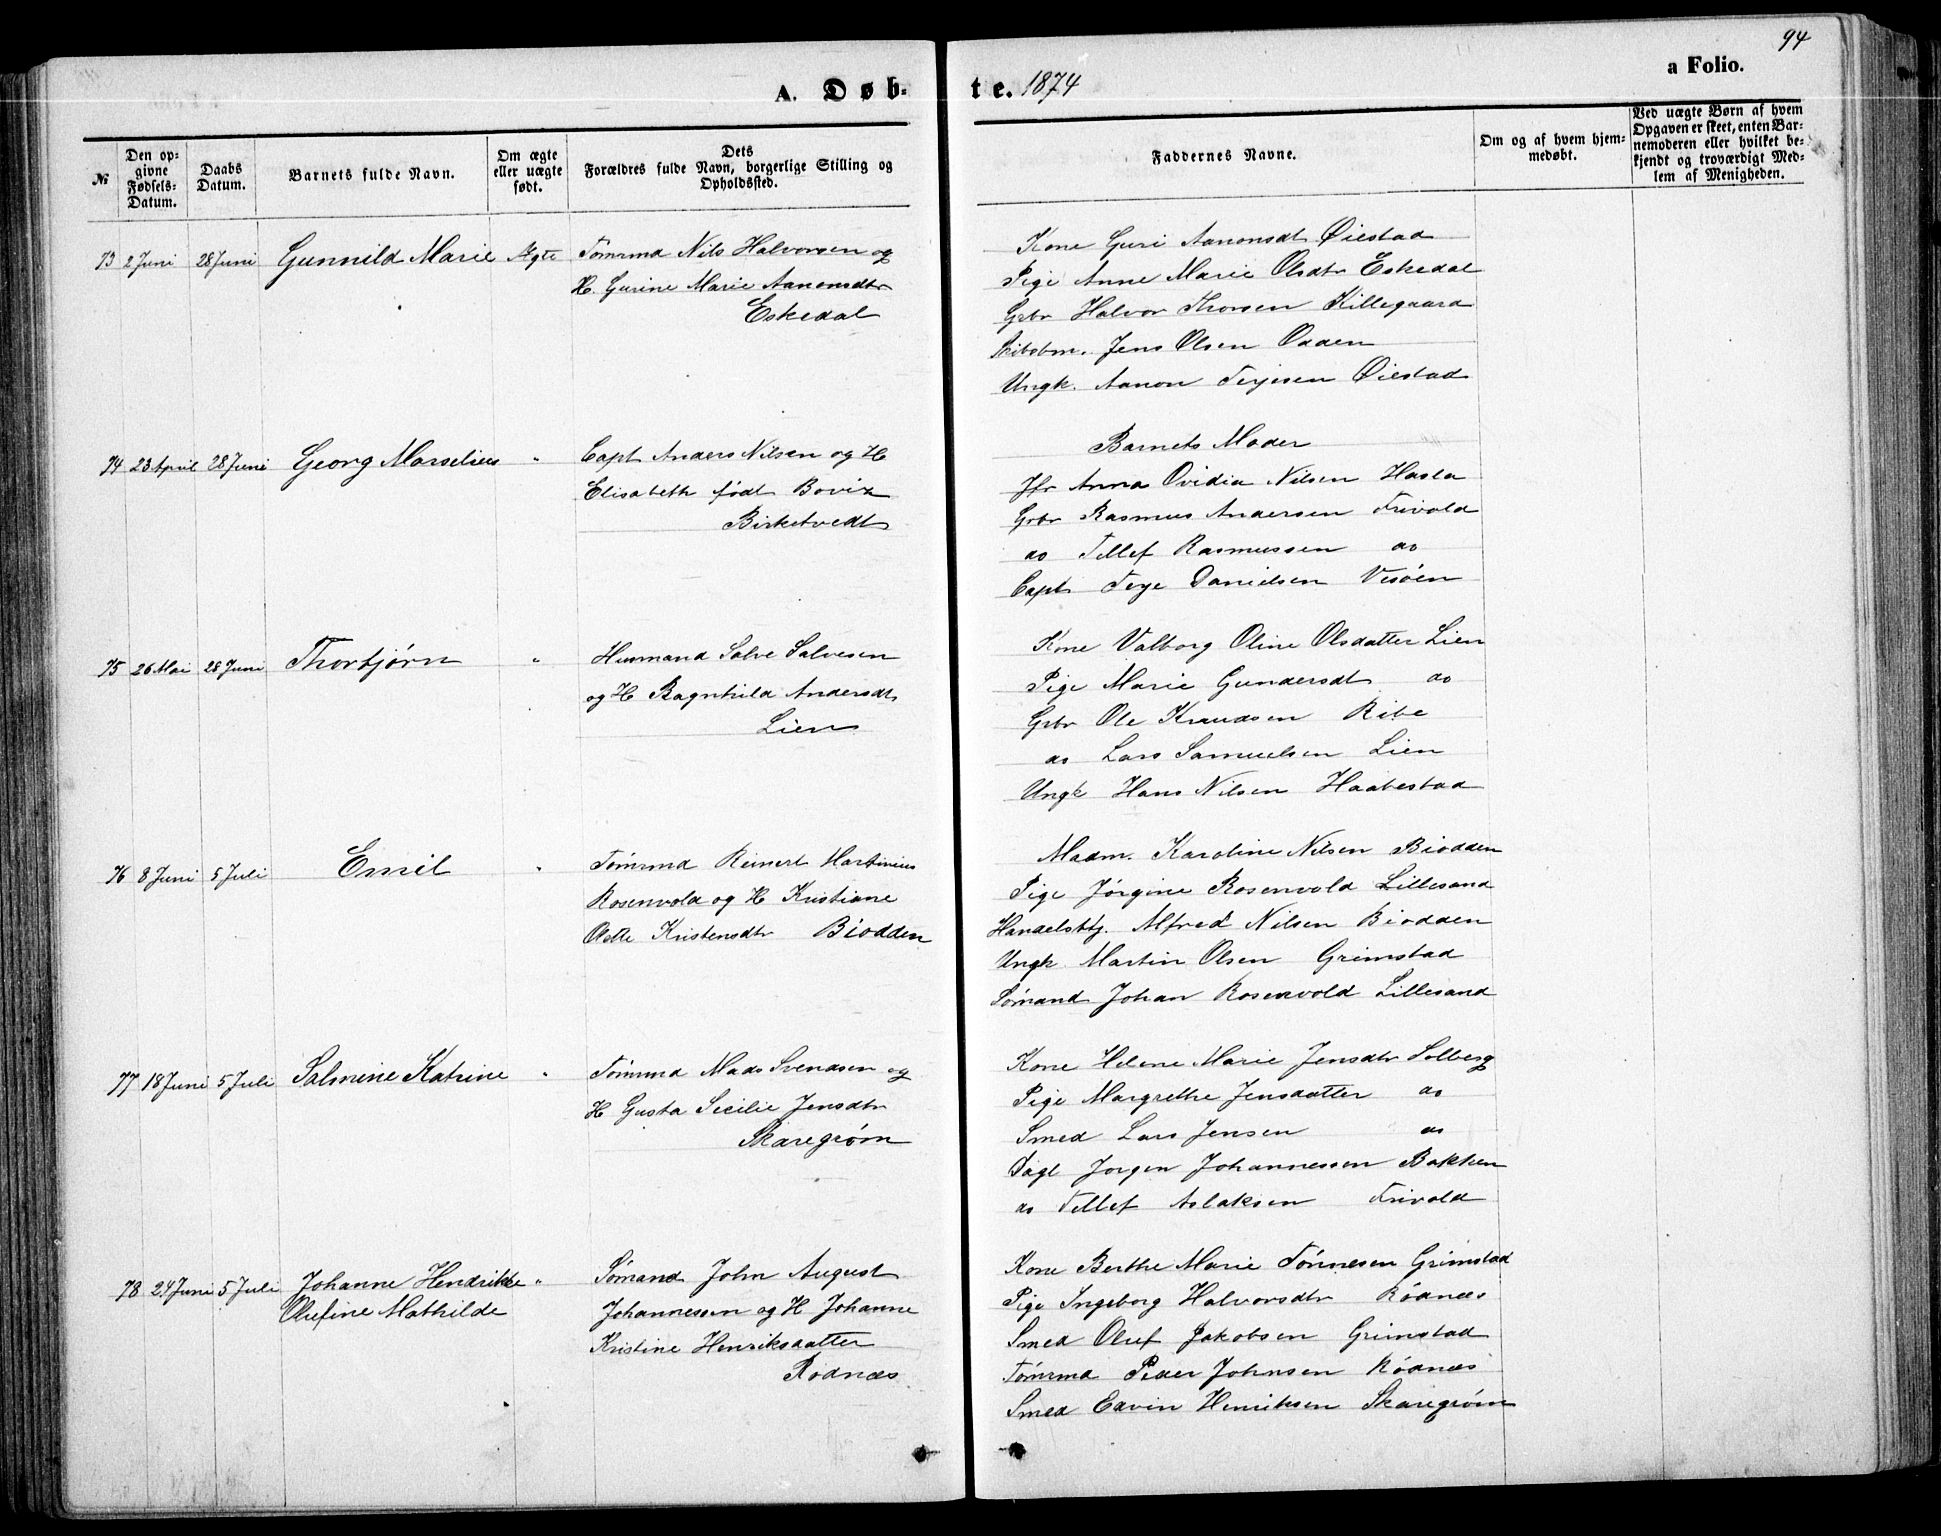 94
A. Døb-
te. 1874
a Folio.
№
Den op-
givne
Fødsels-
Datum.
Daabs
Datum.
Barnets fulde Navn.
Om ægte
eller uægte
født.
Dets
Forældres fulde Navn, borgerlige Stilling og
Opholdssted.
Faddernes Navne.
Om og af hvem hjem-
medøbt.
Ved uægte Børn af hvem
Opgaven er skeet, enten Bar-
nemoderen eller hvilket be-
kjendt og troværdigt Med-
lem af Menigheden.
73 2 Juni 28 Juni Gunnild Marie Ægte Tømrmd Nils Halvorsen og
H. Gurine Marie Aanonsdtr
Eskedal
Kone Guri Aanonsdt Øiestad
Pige Anne Marie Olsdtr Eskedal
Grbr Halvor Thorsen Killegaard
Skibstm. Jens Olsen Odden
Ungk. Aanon Terjesen Øiestad
74 23 April 28 Juni Georg Marselius " Capt Anders Nilsen og H
Elisabeth født Bovix
Birketvedt
Barnets Moder
Jfr Anna Ovidia Nilsen Hasla
Grbr Rasmus Andersen Frivold
do Tellef Rasmussen do
Capt Terje Danielsen Vesøen
75 26 Mai 28 Juni Thorbjørn " Husmand Salve Salvesen
og H Ragnhild Andersdt
Lien
Kone Valborg Oline Olsdatter Lien
Pige Marie Gundersdt do
Grbr Ole Knudsen Ribe
do Lars Samuelsen Lien
Ungk Hans Nilsen Haabestad
76 8 Juni 5 Juli Emil " Tømrmd Reinert Martinius
Rosenvold og H Kristiane
Olette Kristensdtr Biodden
Madm. Karoline Nilsen Biodden
Pige Jørgine Rosenvold Lillesand
Handelsbtj. Alfred Nilsen Biodden
Ungk. Martin Olsen Grimstad
Sømand Johan Rosenvold Lillesand
77 18 Juni 5 Juli Salmine Katrine " Tømrmd Mads Svendsen og
H Gusta Secilie Jensdtr
Skaregrøm
Kone Helene Marie Jensdtr Solberg
Pige Margrethe Jensdatter do
Smed Lars Jensen do
Dagl Jorgen Johannessen Bakken
do Tellef Aslaksen Frivold
78 24 Juni 5 Juli Johanne Hendrikke " Sømand John August
Olufine Mathilde Johannessen og H Johanne
Kristine Henriksdatter
Rodnæs
Kone Berthe Marie Tønnesen Grimstad
Pige Ingeborg Halvorsdtr Rødnæs
Smed Oluf Jakobsen Grimstad
Tømrmd Peder Johnsen Rødnæs
Smed Edvin Henriksen Skaregrøm